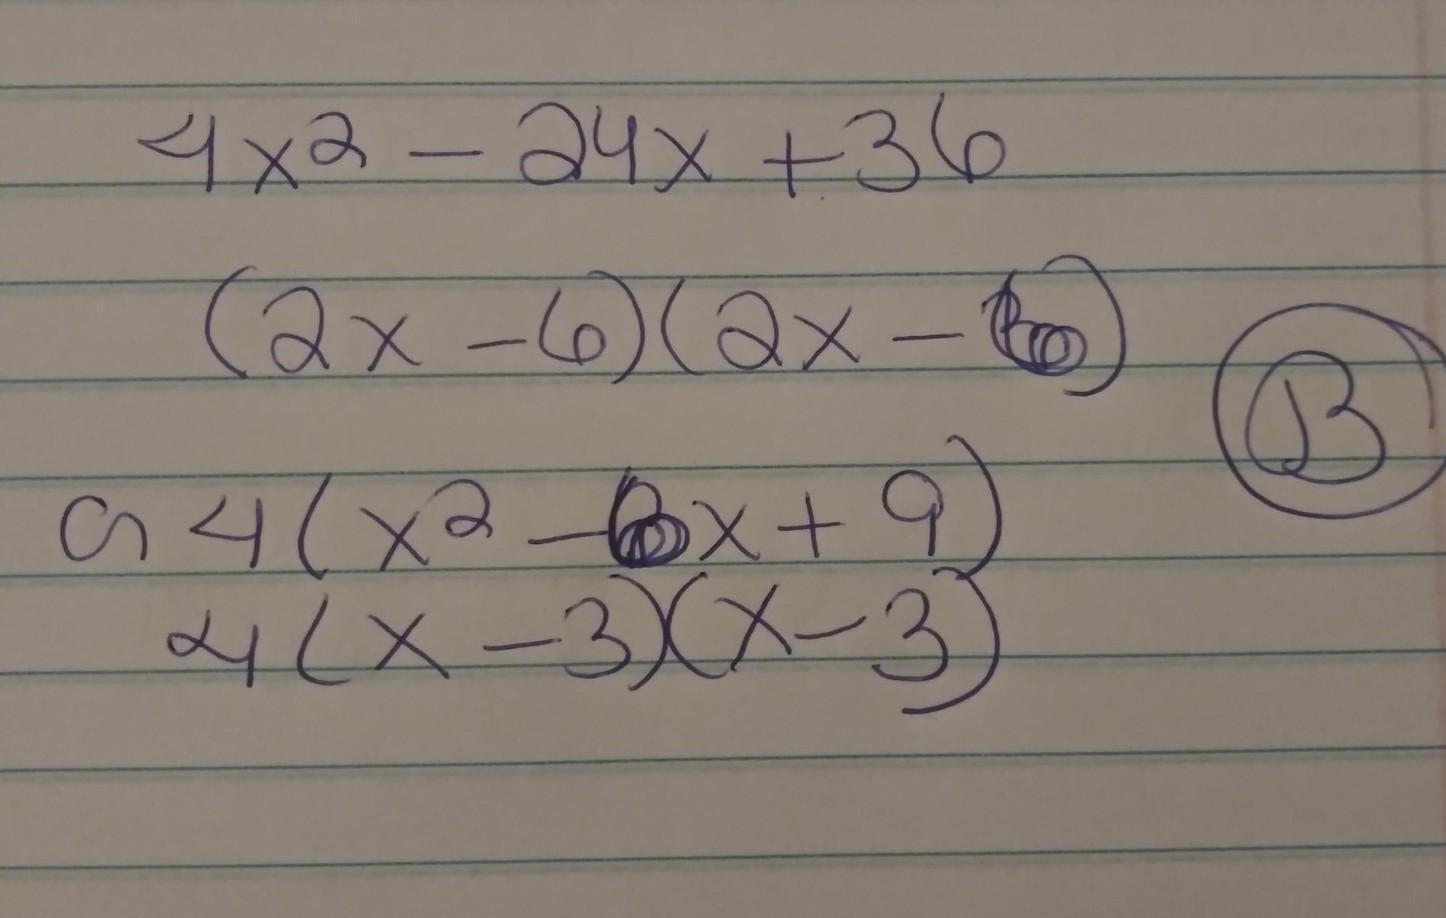 4x² - 24x + 36
(2x - 6)(2x - 6)
B
a 4(x² - 6x + 9)
4(x - 3)(x - 3)